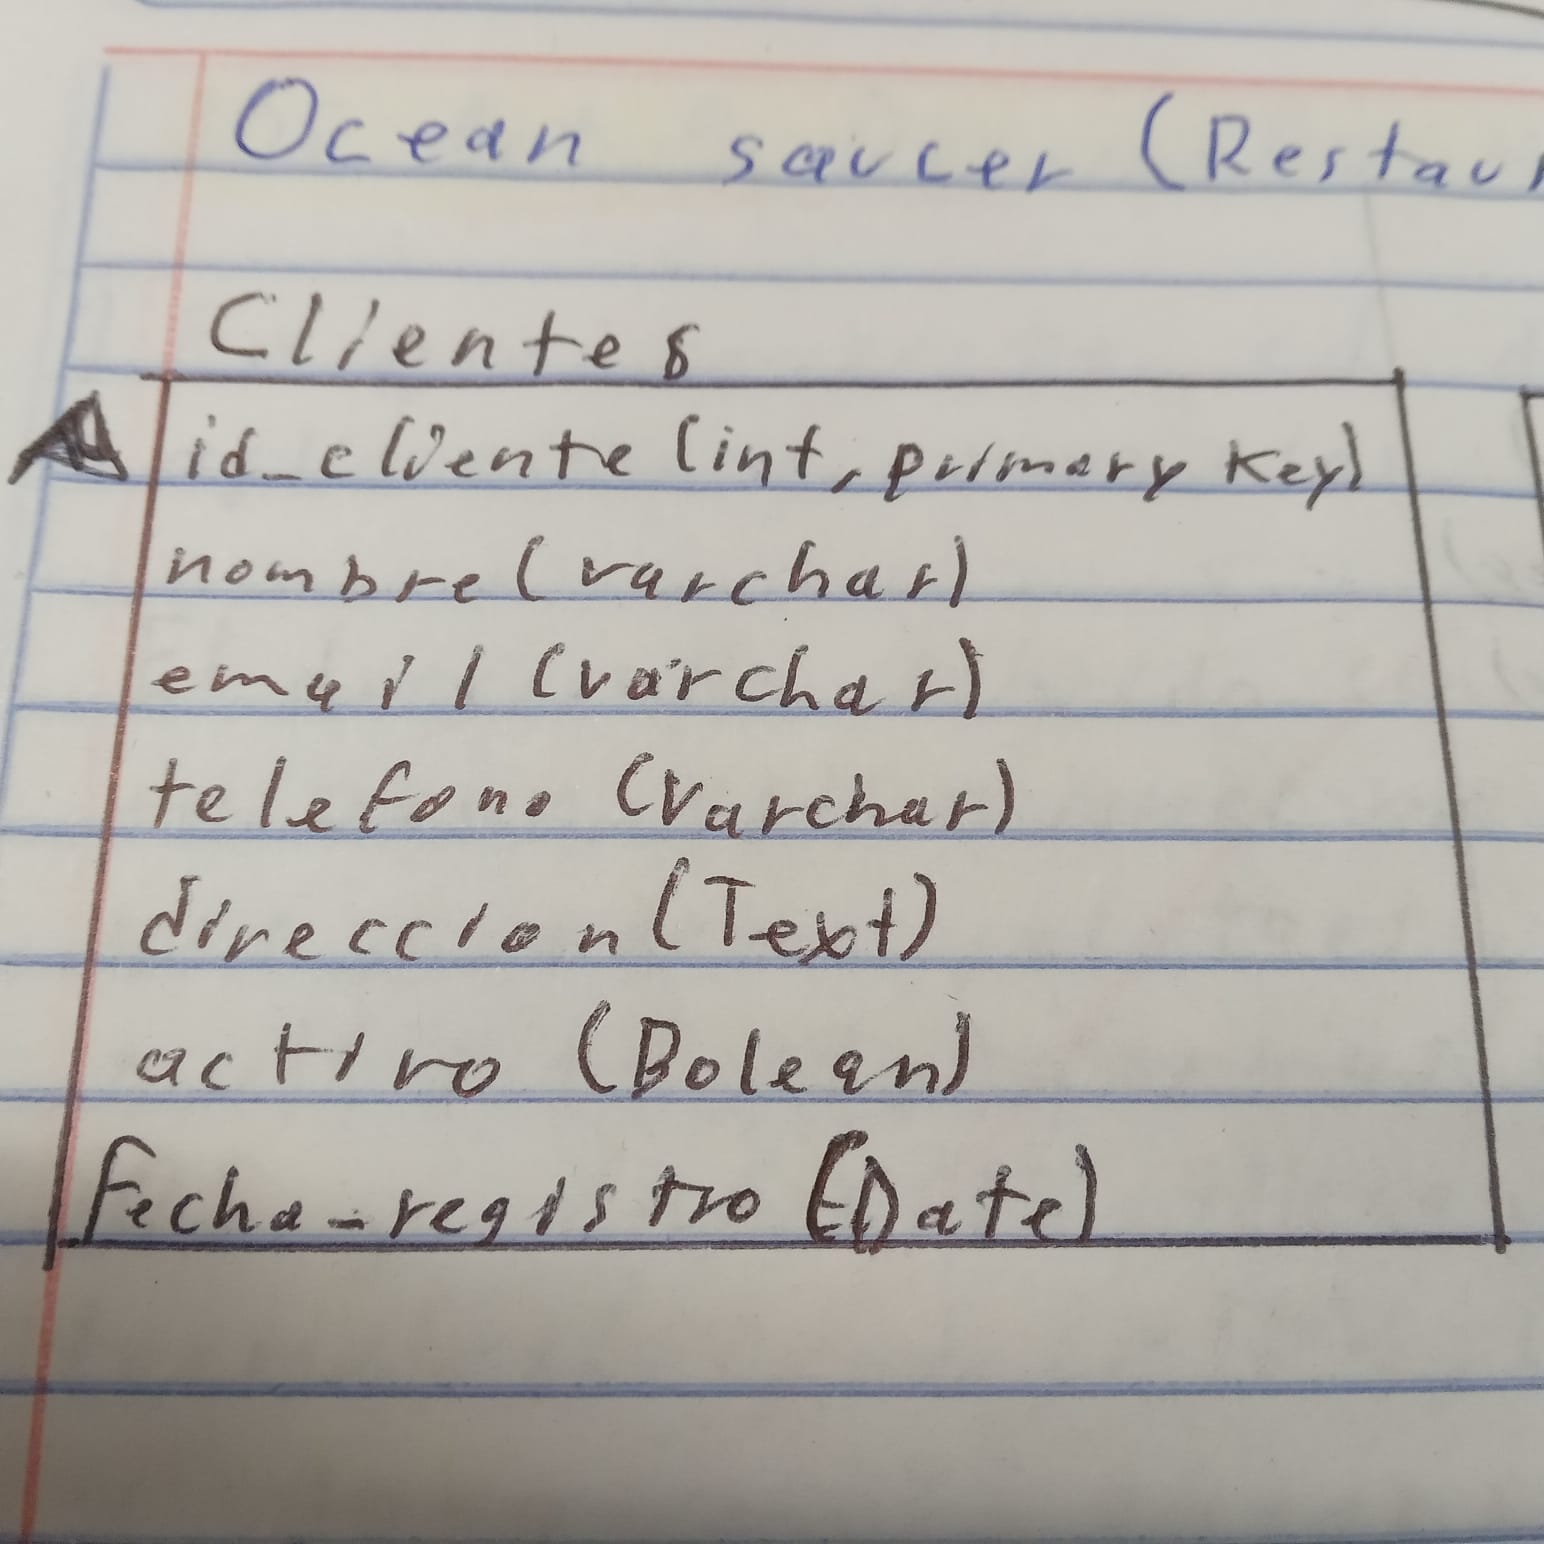 Ocean saucer (Restaur
Clientes
id_cliente (int, primary key)
nombre (varchar)
email (varchar)
telefono (Varchar)
direccion (Text)
activo (Bolean)
fecha_registro (Date)